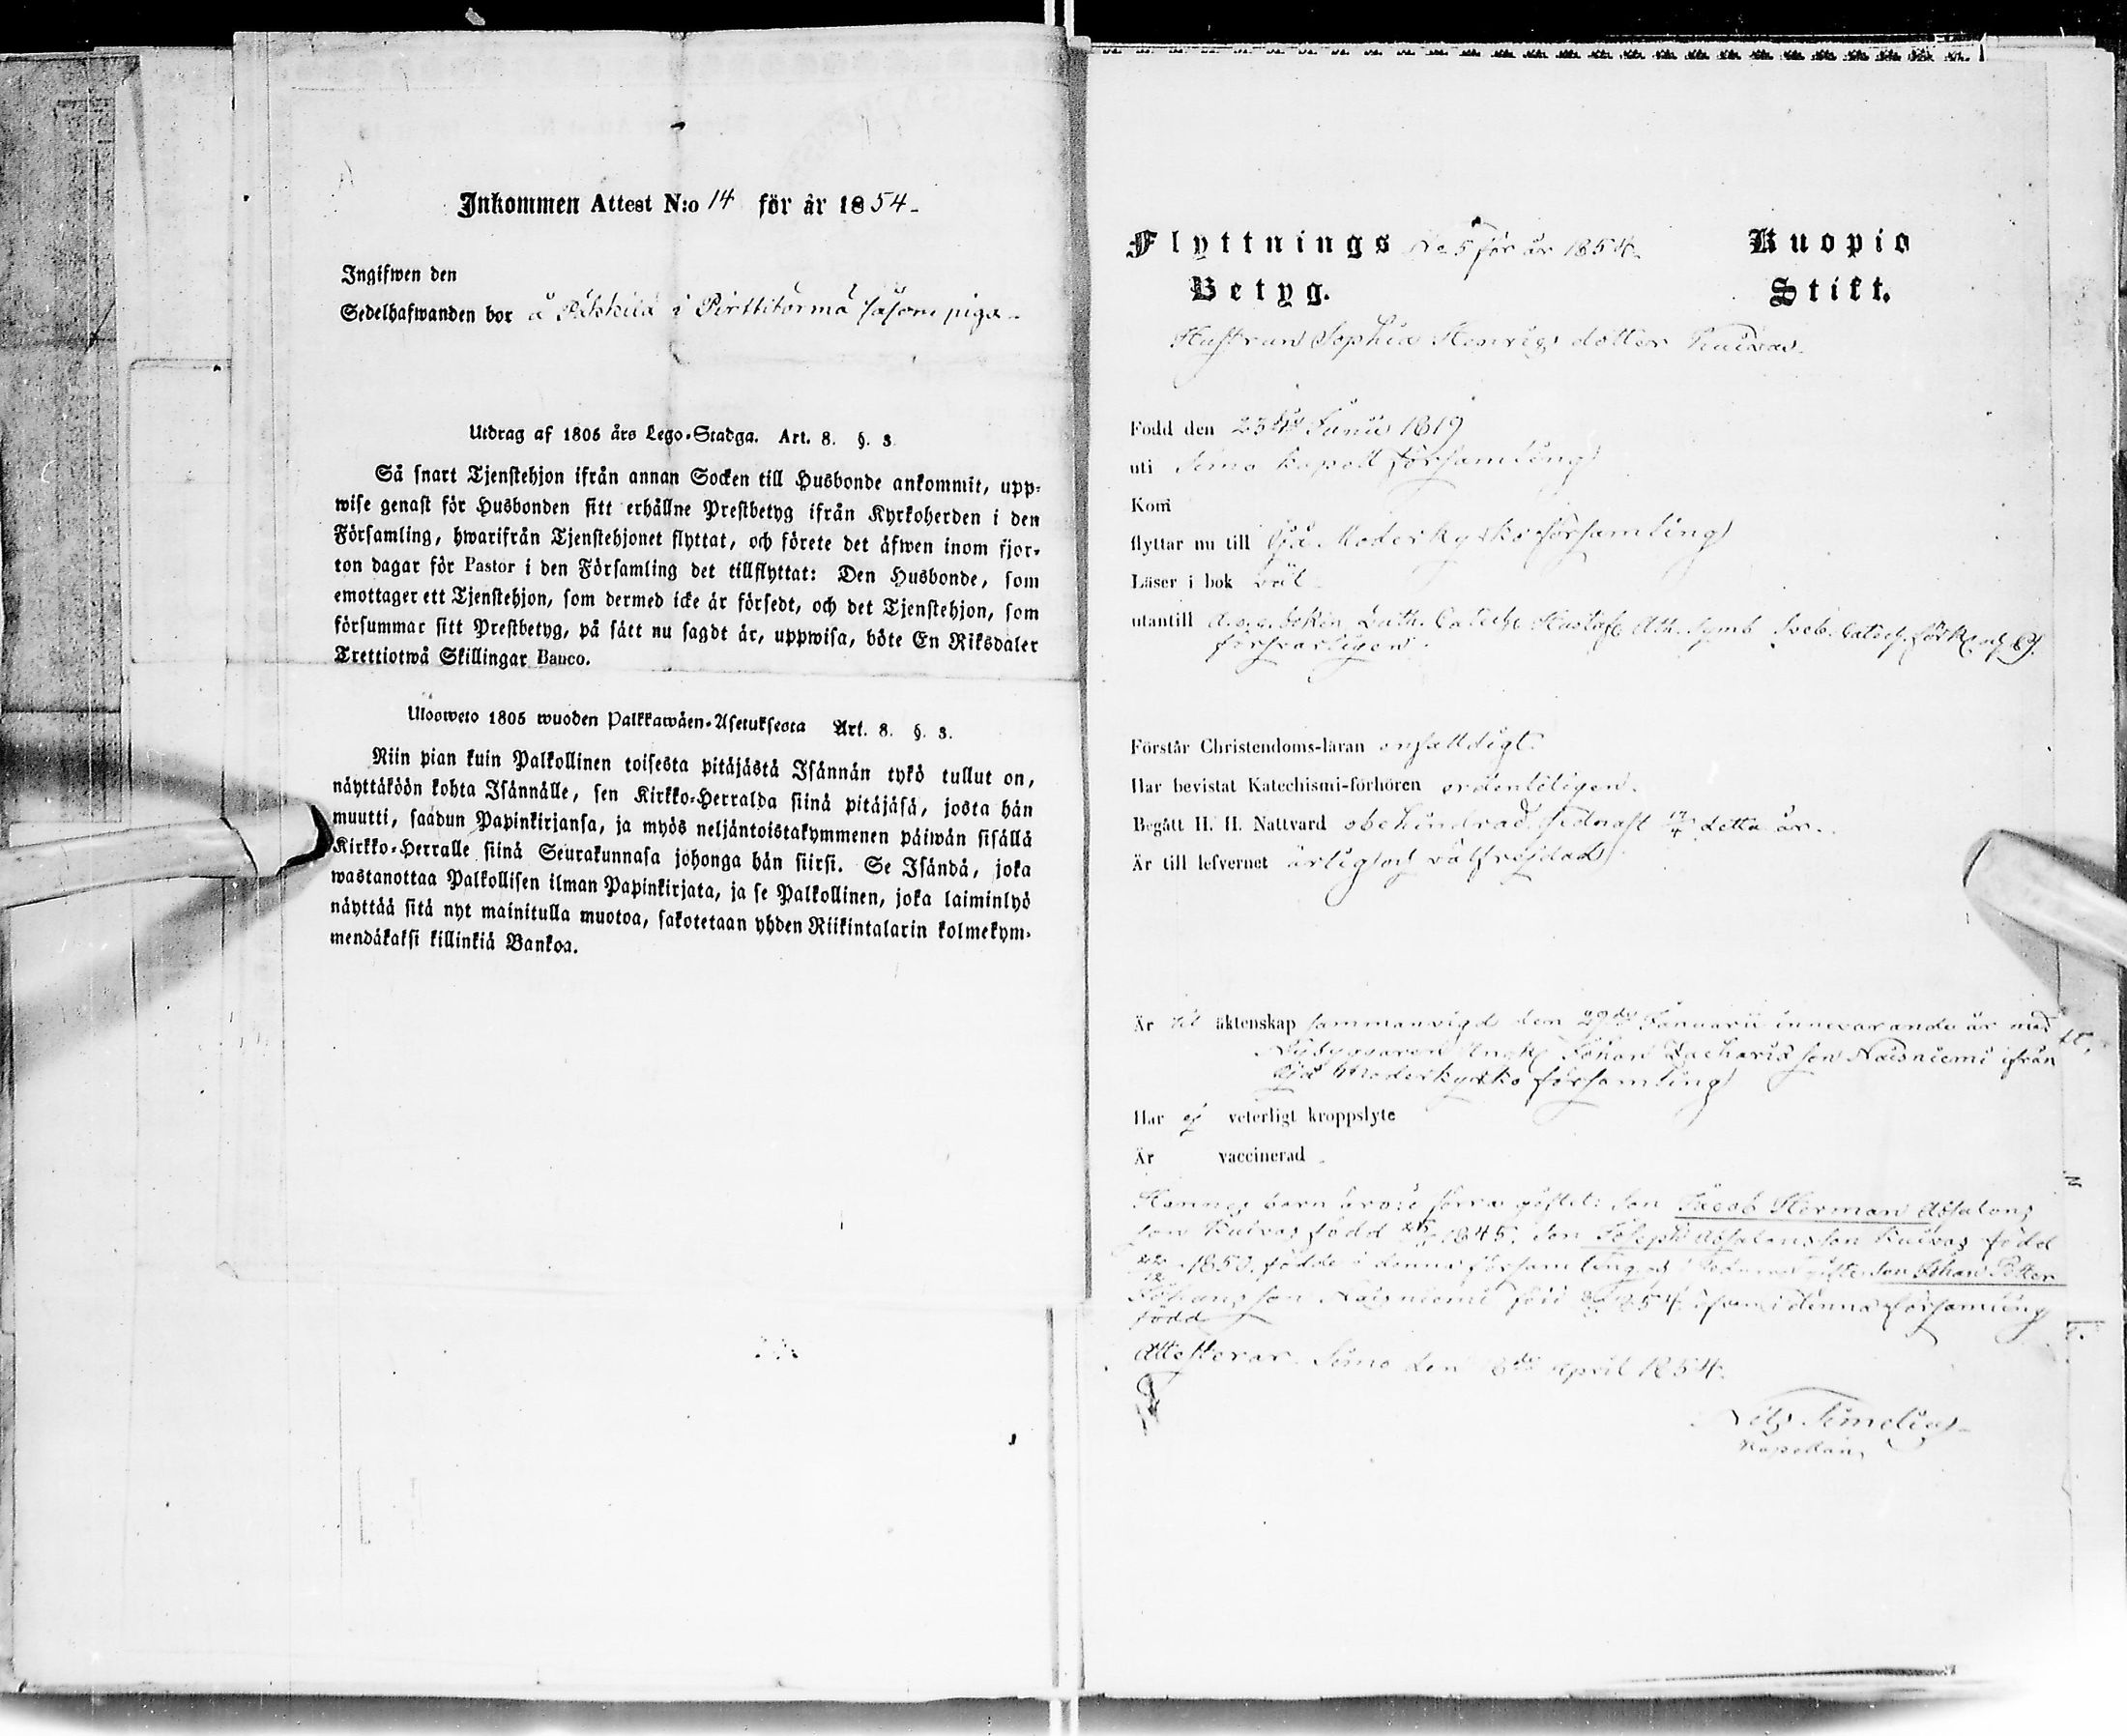 Inkommen Attest N:o 14 för år 1854.
Ingifwen den
Sedelhafwanden bor å i Pirttitörmä såsom piga.
Utdrag af 1805 års Lego-Stadga. Art. 8. §. 3.
Så snart Tjenstehjon ifrån annan Socken till Husbonde ankommit, upp-
wise genast för Husbonden sitt erhållne Prestbetyg ifrån Kyrkoherden i den
Församling, hwarifrån Tjenstehjonet flyttat, och förete det äfwen inom fjor-
ton dagar för Pastor i den Församling det tillflyttat: Den Husbonde, som
emottager ett Tjenstehjon, som dermed icke är försedt, och det Tjenstehjon, som
försummar sitt Prestbetyg, på sätt nu sagdt är, uppwisa, böte En Riksdaler
Trettiotwå Skillingar Banco.
Ulosweto 1805 wuoden Palkkawäen-Asetuksesta Art. 8. §. 3.
Niin pian kuin Palkollinen toisesta pitäjästä Isännän tykö tullut on,
näyttäköön kohta Isännälle, sen Kirkko-Herralda siinä pitäjäsä, josta hän
muutti, saadun Papinkirjansa, ja myös neljäntoistakymmenen päiwän sisällä
Kirkko-Herralle siinä Seurakunnasa johonga hän siirsi. Se Isändä, joka
wastanottaa Palkollisen ilman Papinkirjata, ja se Palkollinen, joka laiminlyö
näyttää sitä nyt mainitulla muotoa, sakotetaan yhden Riikintalarin kolmekym-
mendäkaksi killinkiä Bankoa.
Flyttnings No 5 för år 1854. Kuopio
Betyg. Stift.
Hustrun Sophia Henrigs dotter Kuivas.
Född den 23de Junii 1819
uti Simo kapell församling
Kom
flyttar nu till Ijå Moderkyrko församling
Läser i bok väl
utantill a.b.c. boken Luth. Catech. Hustafl. Ath. Symb. Sveb. Catech.
försvarligen.
Förstår Christendoms-läran enfaldigt.
Har bevistat Katechismi-förhören ordenteligen.
Begått H. H. Nattvard obehindrad, sednast detta år.
Är till lefvernet ärlig och välfrejdad
Är till äktenskap sammanvigd den 29de Januarii innevarande år med
Nybyggaren Johan Zacharias son Naisniemi ifrån
Ijå Moderkyrko församling
Har ej veterligt kroppslyte
Är vaccinerad
Hennes barn äro: i förra giftet: Son Jacob Herman Absalons
son Kuivas född 1845, Son Joseph Absalons son Kuivas född
1850, födde i denna församling, och i sednare giftet Son Johan Petter
Johans son Naisniemi född 1854 äfven i denna församling
född
Attesterar. Simo den 6de April 1854.
Nils Simelius
Kapellan.